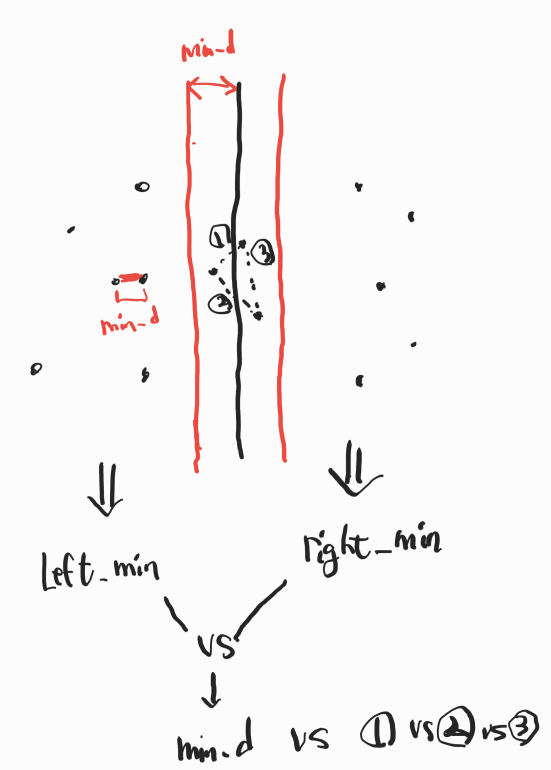 min_d
①
③
②
min_d
left_min
right_min
vs
min_d vs ① vs ② vs ③